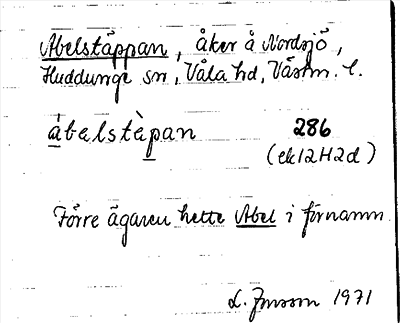 Abelstäppan, åker å Nordsjö,
Huddunge sn, Våla hd, Västm. l.
àbelstèpan 286
(ek 12H2d)
Förre ägaren hette Abel i förnamn
L. Jonsson 1971